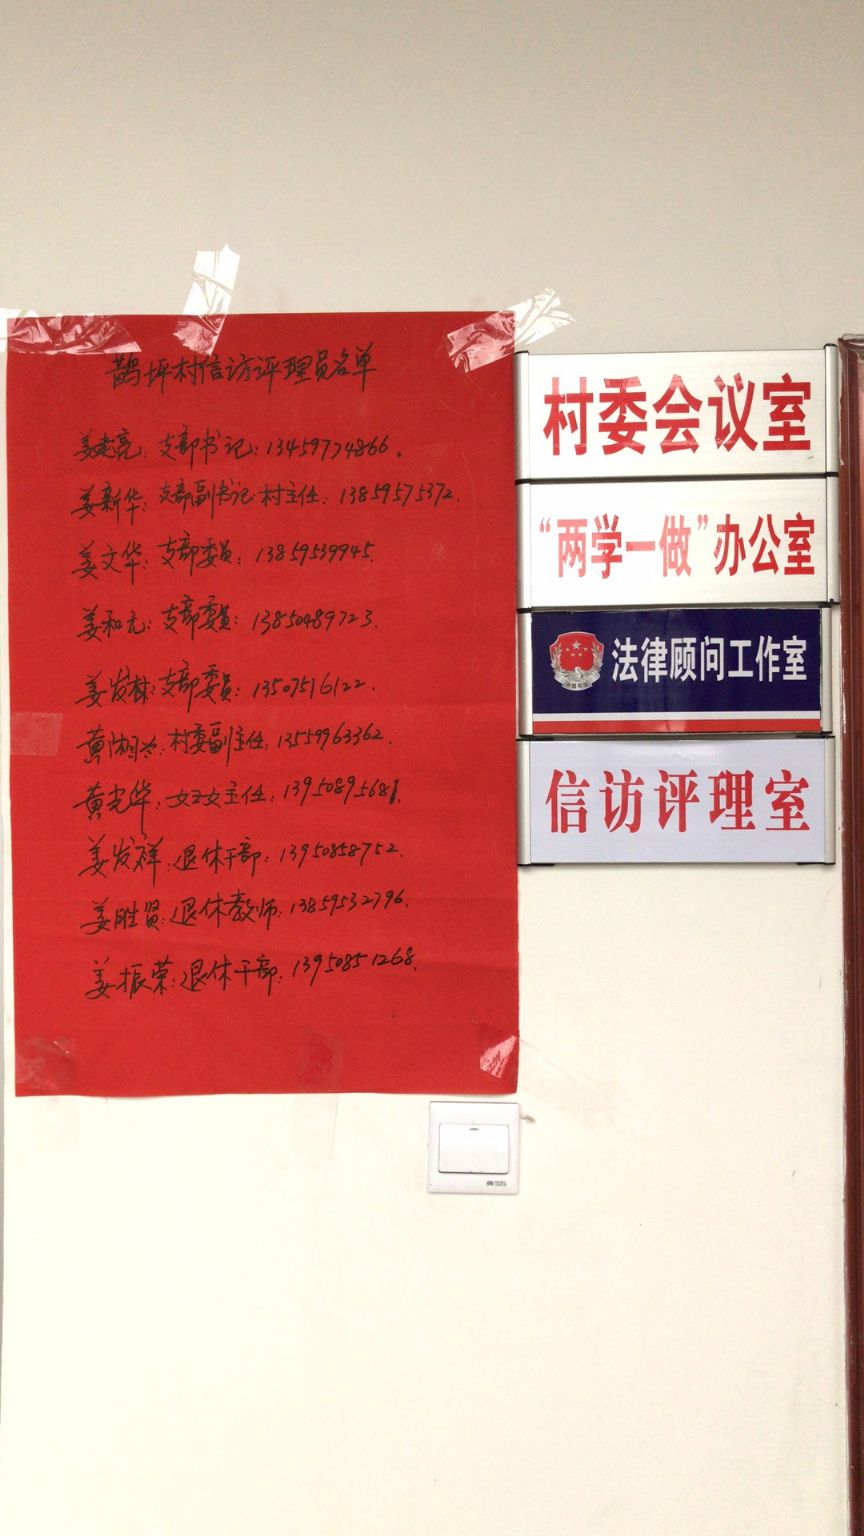 鹊坪村信访评理员名单
姜老亮：支部书记：13459774866.
姜新华：支部副书记 村主任：13859575372.
姜文华：支部委员：13859539945.
姜和元：支部委员：13850489723.
姜发林：支部委员：13507516122.
黄湖兴：村委副主任：13559963362.
黄光华：妇女主任：13950895681.
姜发祥：退休干部：13950858752.
姜胜贤：退休教师：13859532796.
姜振荣：退休干部：13950851268.
村委会议室
“两学一做”办公室
法律顾问工作室
信访评理室